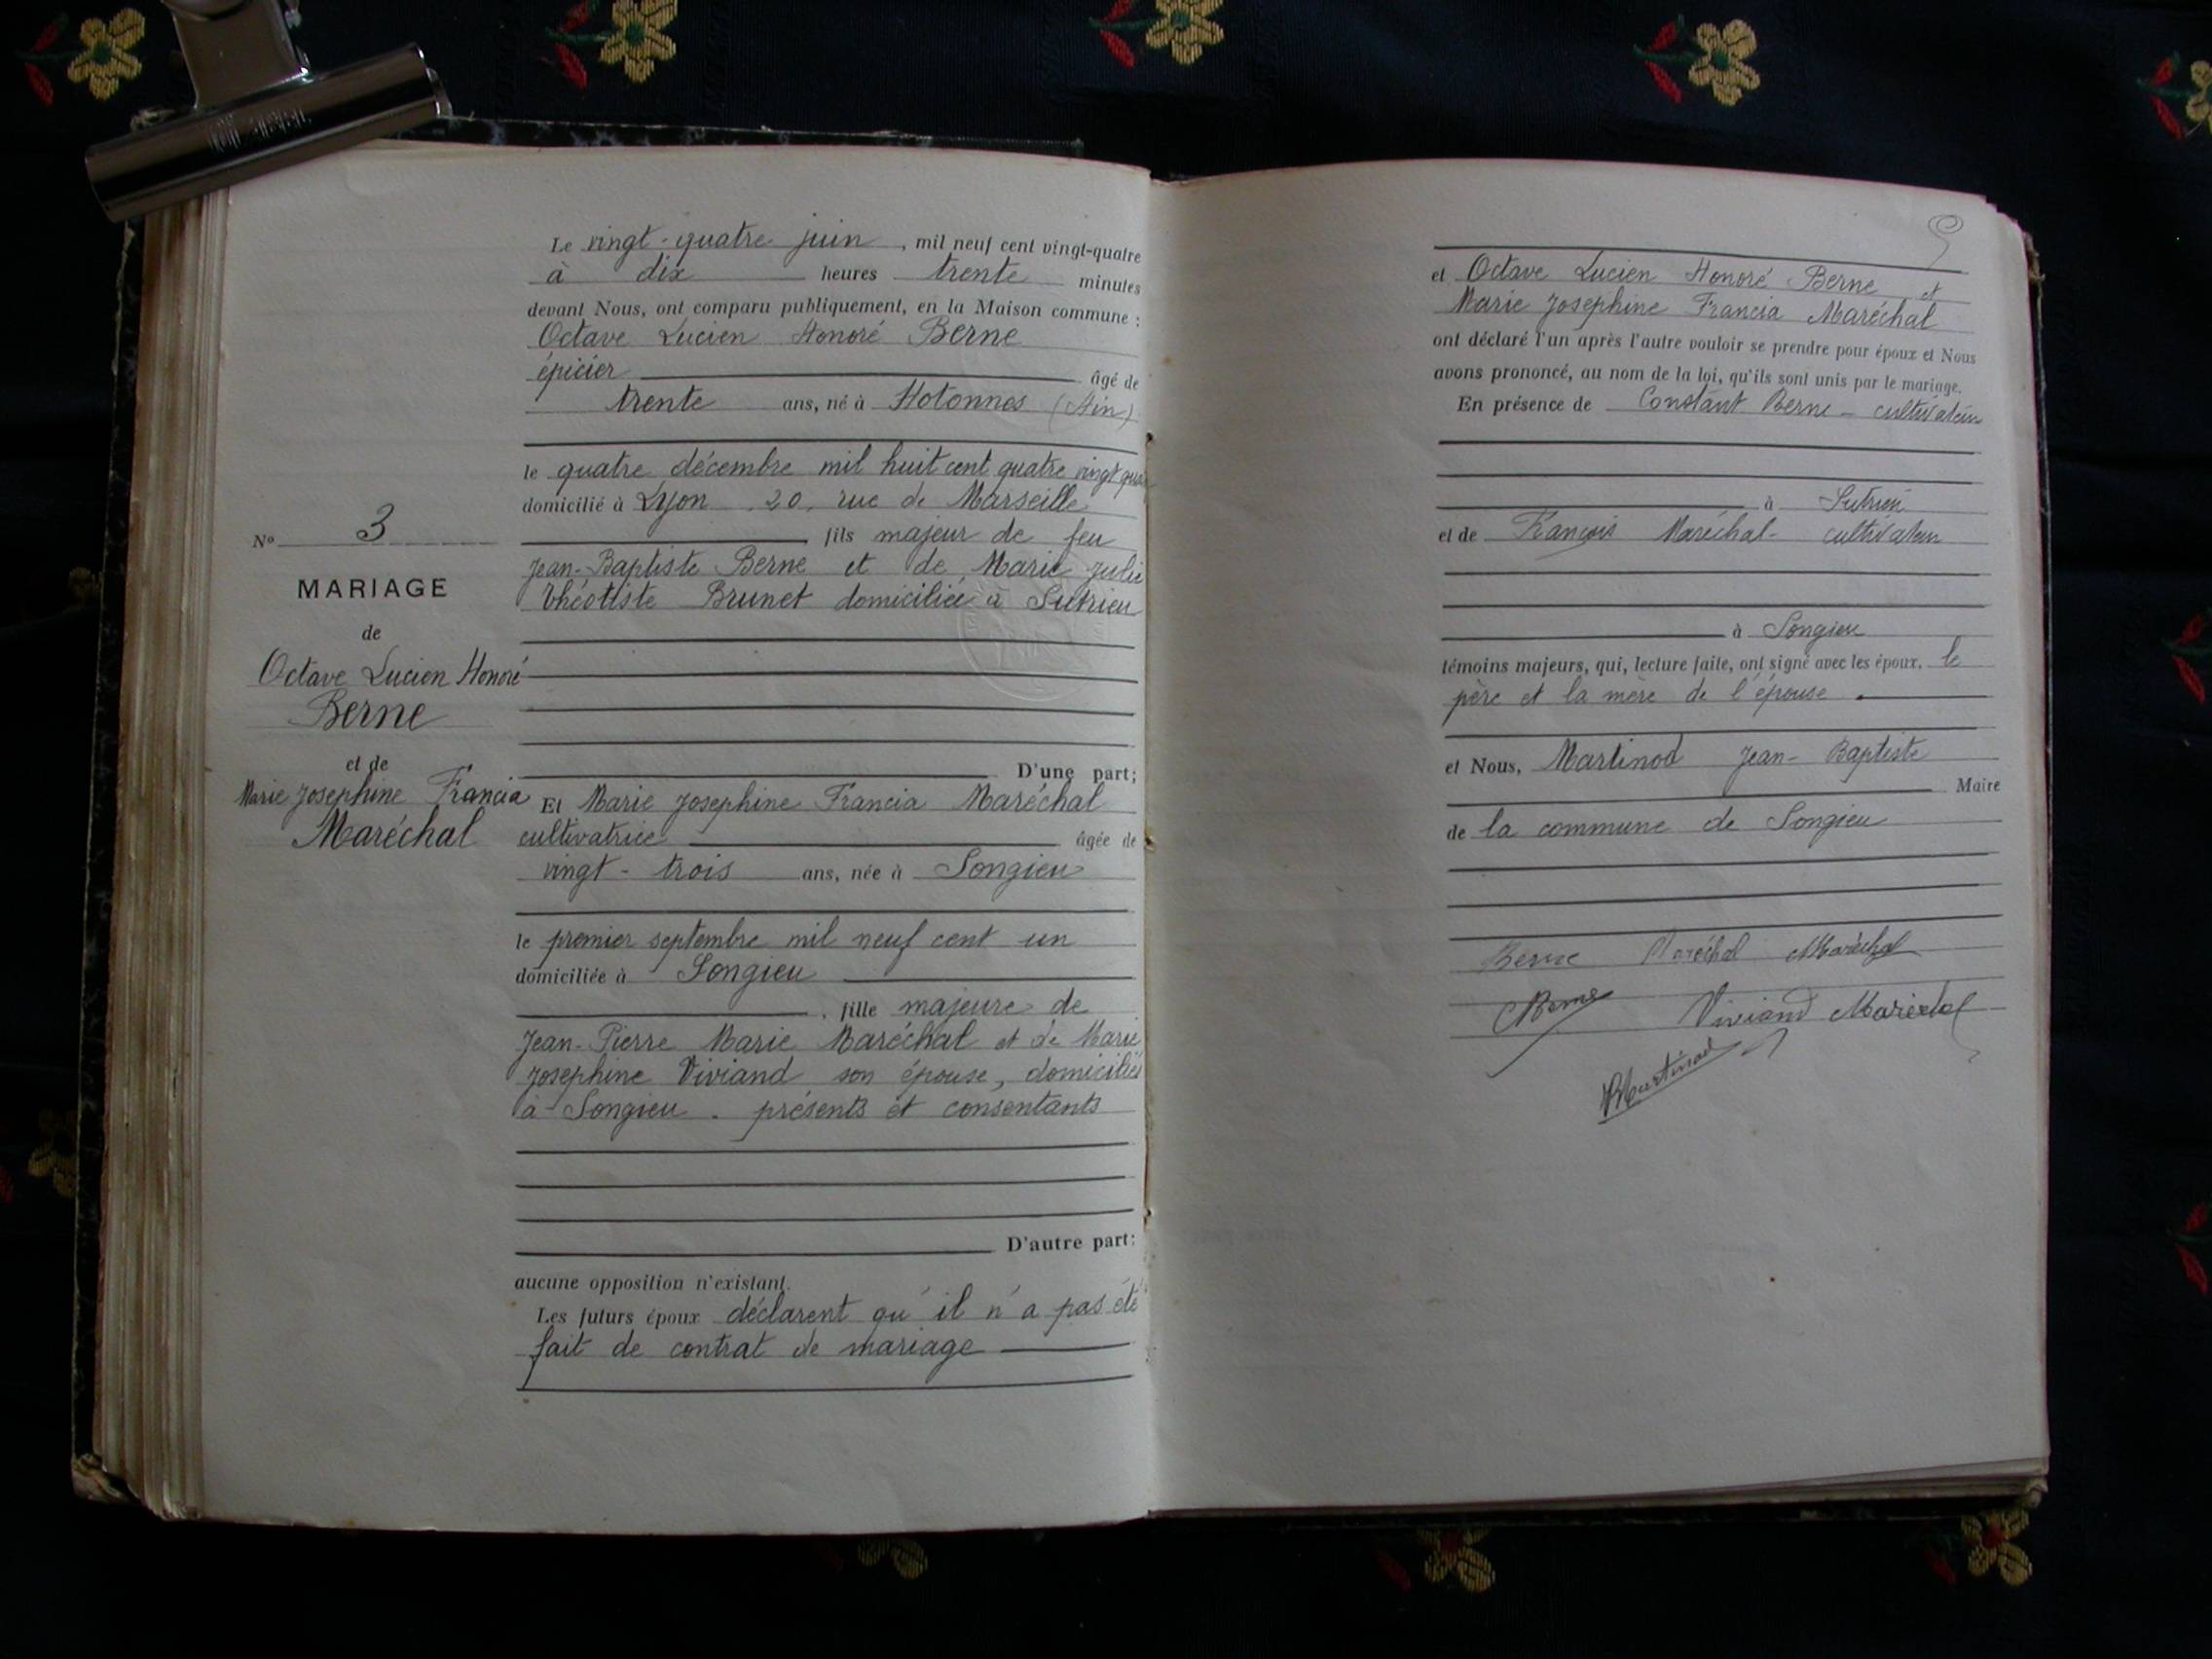 N° 3
MARIAGE
de
Octave Lucien Honoré
Berne
et de
Marie Josephine Francia
Maréchal
Le vingt-quatre juin, mil neuf cent vingt-quatre
à dix heures trente minutes
devant Nous, ont comparu publiquement, en la Maison commune :
Octave Lucien Honoré Berne
épicier âgé de
trente ans, né à Hotonnes (Ain)
le quatre décembre mil huit cent quatre vingt
domicilié à Lyon . 20, rue de Marseille
, fils majeur de feu
Jean-Baptiste Berne et de Marie Julie
Théotiste Brunet domiciliée à Sutrieu
D'une part;
Et Marie Josephine Francia Maréchal
cultivatrice âgée de
vingt-trois ans, née à Songieu
le premier septembre mil neuf cent un
domiciliée à Songieu
, fille majeure de
Jean-Pierre Marie Maréchal et de Marie
Josephine Viviand son épouse, domiciliés
à Songieu . présents et consentants
D'autre part:
aucune opposition n'existant.
Les futurs époux déclarent qu'il n'a pas été
fait de contrat de mariage
et Octave Lucien Honoré Berne et
Marie Josephine Francia Maréchal
ont déclaré l'un après l'autre vouloir se prendre pour époux et Nous
avons prononcé, au nom de la loi, qu'ils sont unis par le mariage.
En présence de Constant Berne - cultivateur
à Sutrieu
et de François Maréchal - cultivateur
à Songieu
témoins majeurs, qui, lecture faite, ont signé avec les époux, le
père et la mère de l'épouse .
et Nous, Martinod Jean-Baptiste
Maire
de la commune de Songieu
Berne Maréchal Maréchal
CBerne Viviand Maréchal
Martinod